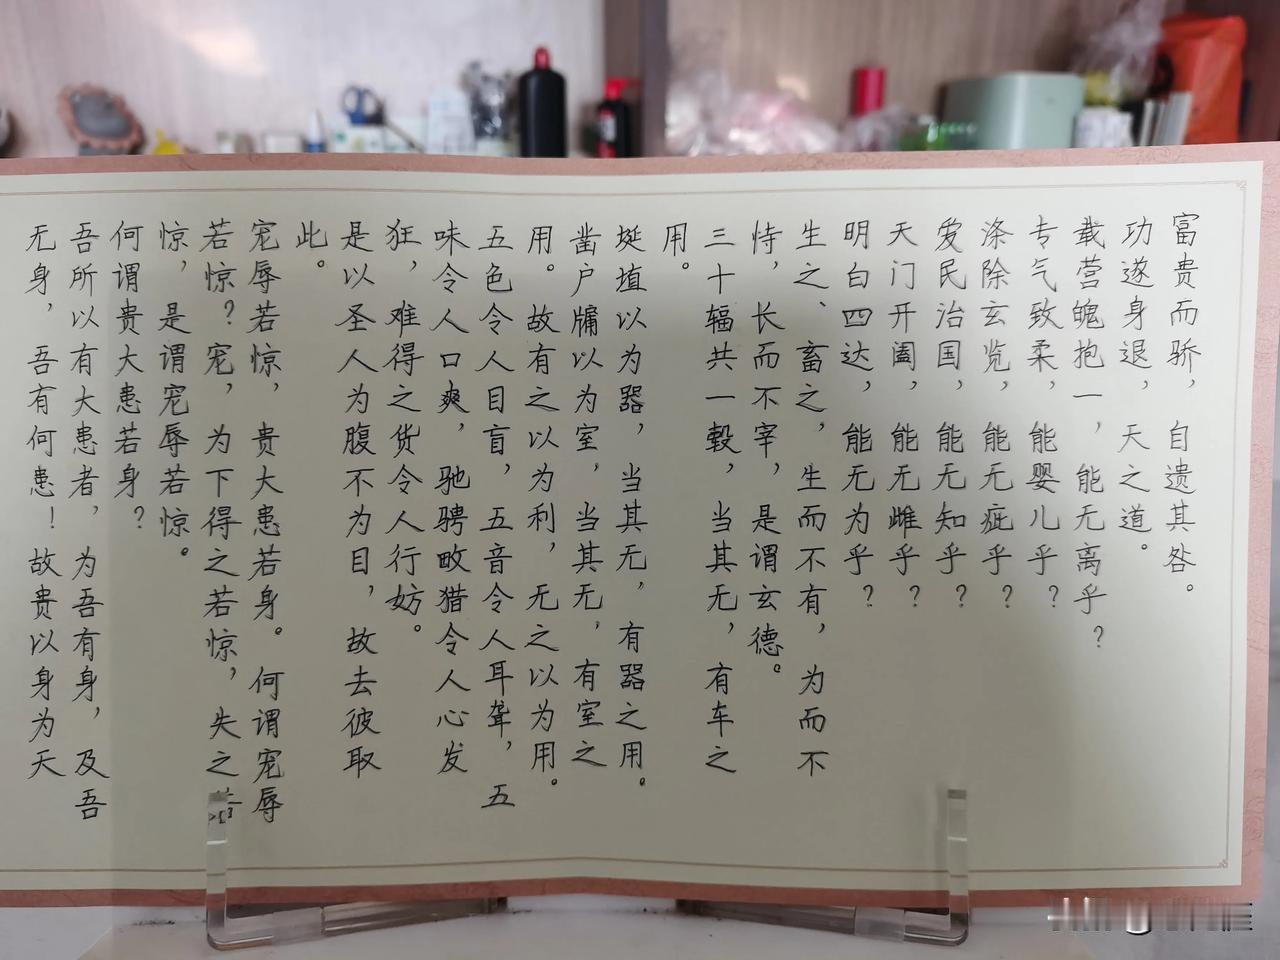 富贵而骄，自遗其咎。
功遂身退，天之道。
载营魄抱一，能无离乎？
专气致柔，能婴儿乎？
涤除玄览，能无疵乎？
爱民治国，能无知乎？
天门开阖，能无雌乎？
明白四达，能无为乎？
生之、畜之，生而不有，为而不
恃，长而不宰，是谓玄德。
三十辐共一毂，当其无，有车之
用。
埏埴以为器，当其无，有器之用。
凿户牖以为室，当其无，有室之
用。故有之以为利，无之以为用。
五色令人目盲，五音令人耳聋，五
味令人口爽，驰骋畋猎令人心发
狂，难得之货令人行妨。
是以圣人为腹不为目，故去彼取
此。
宠辱若惊，贵大患若身。何谓宠辱
若惊？宠，为下得之若惊，失之若
惊，是谓宠辱若惊。
何谓贵大患若身？
吾所以有大患者，为吾有身，及吾
无身，吾有何患！故贵以身为天